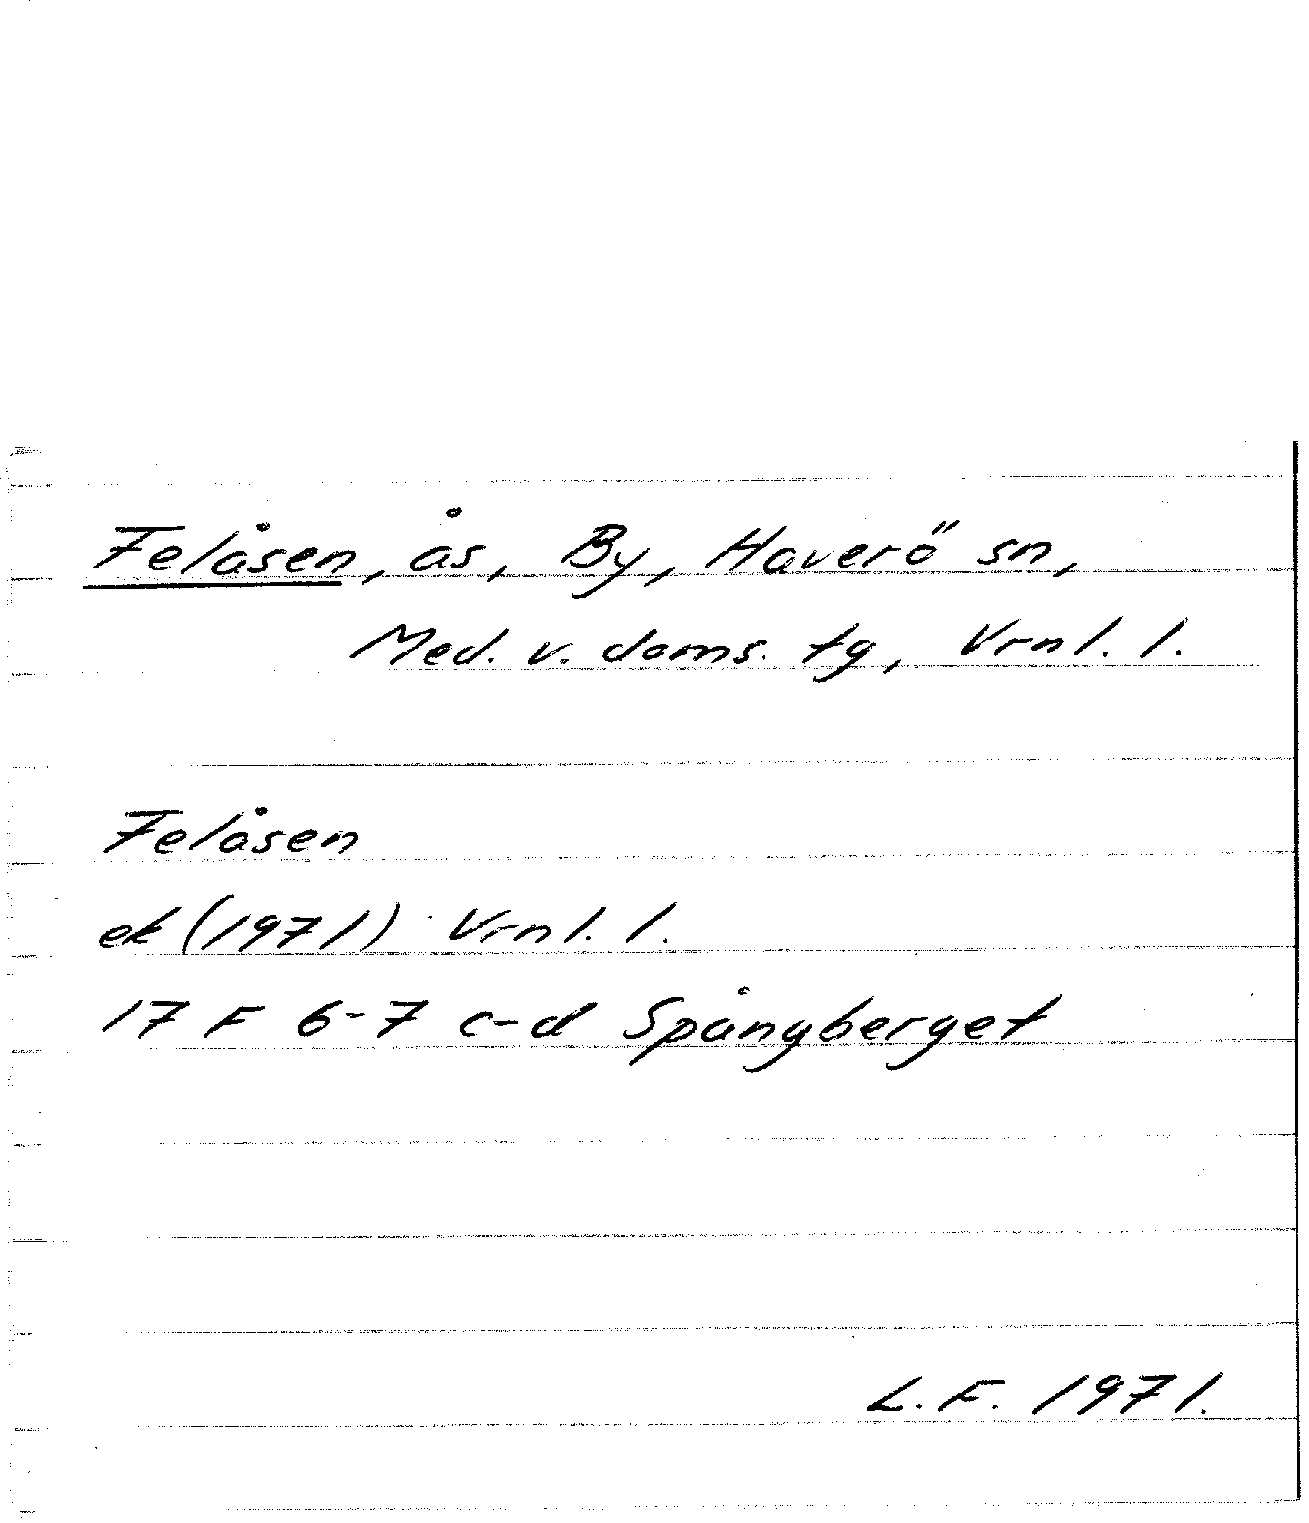 Felåsen, ås, By, Haverö sn,
Med. v. doms. tg, Vrnl. l.
Felåsen
ek (1971) Vrnl. l.
17 F 6-7 c-d Spångberget
L.F. 1971.